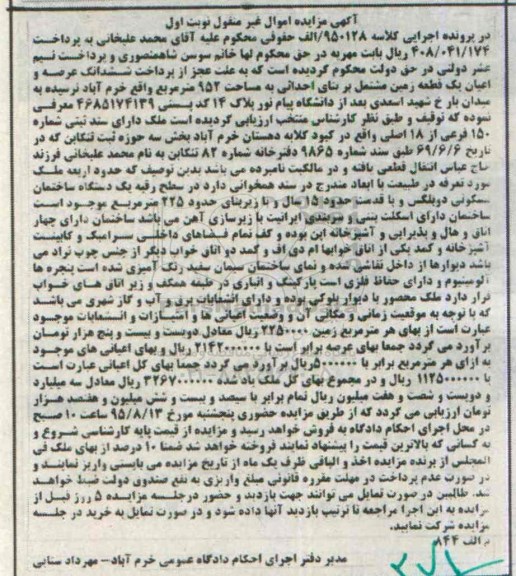 آگهی مزایده اموال غیر منقول نوبت اول
در پرونده اجرایی کلاسه ۹۵۰۱۲۸/الف حقوقی محکوم علیه آقای محمد علیخانی به پرداخت
۴۰۸/۰۴۱/۱۷۴ ریال بابت مهریه در حق محکوم لها خانم سوسن شاهمنصوری و پرداخت نسیم
عشر دولتی در حق دولت محکوم گردیده است که به علت عجز از پرداخت ششدانگ عرصه و
اعیان یک قطعه زمین مشتمل بر بنای احداثی به مساحت ۹۵۲ مترمربع واقع خرم آباد نرسیده به
میدان بار خ شهید اسعدی بعد از دانشگاه پیام نور پلاک ۱۴ کد پستی ۴۶۸۵۱۷۴۱۳۹ معرفی
نموده که توقیف و طبق نظر کارشناس منتخب ارزیابی گردیده است ملک دارای سند ثبتی شماره
۱۵۰ فرعی از ۱۸ اصلی واقع در کبود کلابه دهستان خرم آباد بخش سه حوزه ثبت تنکابن که در
تاریخ ۶۹/۶/۶ طبق سند شماره ۹۸۶۵ دفترخانه شماره ۸۲ تنکابن به نام محمد علیخانی فرزند
حاج عباس انتقال قطعی یافته و در مالکیت نامبرده می باشد بدین توصیف که حدود اربعه ملک
مورد تعرفه در طبیعت با ابعاد مندرج در سند همخوانی دارد در سطح رقبه یک دستگاه ساختمان
مسکونی دوبلکس و با قدمت حدود ۱۵ سال و با زیربنای حدود ۲۲۵ مترمربع موجود است
ساختمان دارای اسکلت بتنی و سربندی ایرانیت با زیرسازی آهن می باشد ساختمان دارای چهار
اتاق و هال و پذیرایی و آشپزخانه این بوده و کف تمام فضاهای داخلی سرامیک و کابینت
آشپزخانه و کمد یکی از اتاق خوابها ام دی اف و کمد دو اتاق خواب دیگر از جنس چوب نراد می
باشد دیوارها از داخل نقاشی شده و نمای ساختمان سیمان سفید رنگ آمیزی شده است پنجره ها
آلومینیوم و دارای حفاظ فلزی است پارکینگ و انباری در طبقه همکف و زیر اتاق های خواب
قرار دارد ملک محصور با دیوار بلوکی بوده و دارای انشعابات برق و آب و گاز شهری می باشد
که با توجه به موقعیت زمانی و مکانی آن و وضعیت اعیانی ها و امتیازات و انشعابات موجود
عبارت است از بهای هر مترمربع زمین ۲۲۵۰۰۰۰ ریال معادل دویست و بیست و پنج هزار تومان
برآورد می گردد جمعا بهای عرصه برابر است با ۲۱۴۲۰۰۰۰۰۰ ریال و بهای اعیانی های موجود
به ازای هر مترمربع برابر با ۵۰۰۰۰۰۰ ریال برآورد می گردد جمعا بهای کل اعیانی عبارت است
با ۱۱۲۵۰۰۰۰۰۰ ریال و در مجموع بهای کل ملک یاد شده ۳۲۶۷۰۰۰۰۰۰ ریال معادل سه میلیارد
و دویست و شصت و هفت میلیون ریال تمام برابر با سیصد و بیست و شش میلیون و هفتصد هزار
تومان ارزیابی می گردد که از طریق مزایده حضوری پنجشنبه مورخ ۹۵/۸/۱۳ ساعت ۱۰ صبح
در محل اجرای احکام دادگاه به فروش خواهد رسید و مزایده از قیمت پایه کارشناسی شروع و
به کسانی که بالاترین قیمت را پیشنهاد نمایند فروخته خواهد شد ضمنا ۱۰ درصد از بهای ملک فی
المجلس از برنده مزایده اخذ و الباقی ظرف یک ماه از تاریخ مزایده می بایستی واریز نمایند و
در صورت عدم پرداخت در مهلت مقرره قانونی مبلغ واریزی به نفع صندوق دولت ضبط خواهد
شد. طالبین در صورت تمایل می توانند جهت بازدید و حضور درجلسه مزایده ۵ روز قبل از
مزایده به این اجرا مراجعه تا ترتیب بازدید آنها داده شود و در صورت تمایل به خرید در جلسه
مزایده شرکت نمایید.
م الف ۸۴۴
مدیر دفتر اجرای احکام دادگاه عمومی خرم آباد- مهرداد سنایی